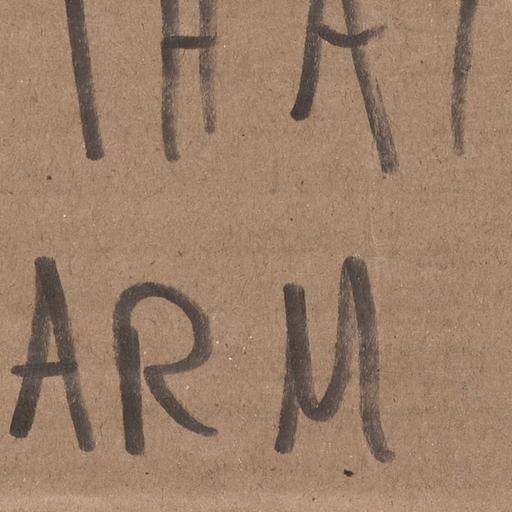 THAT
ARM